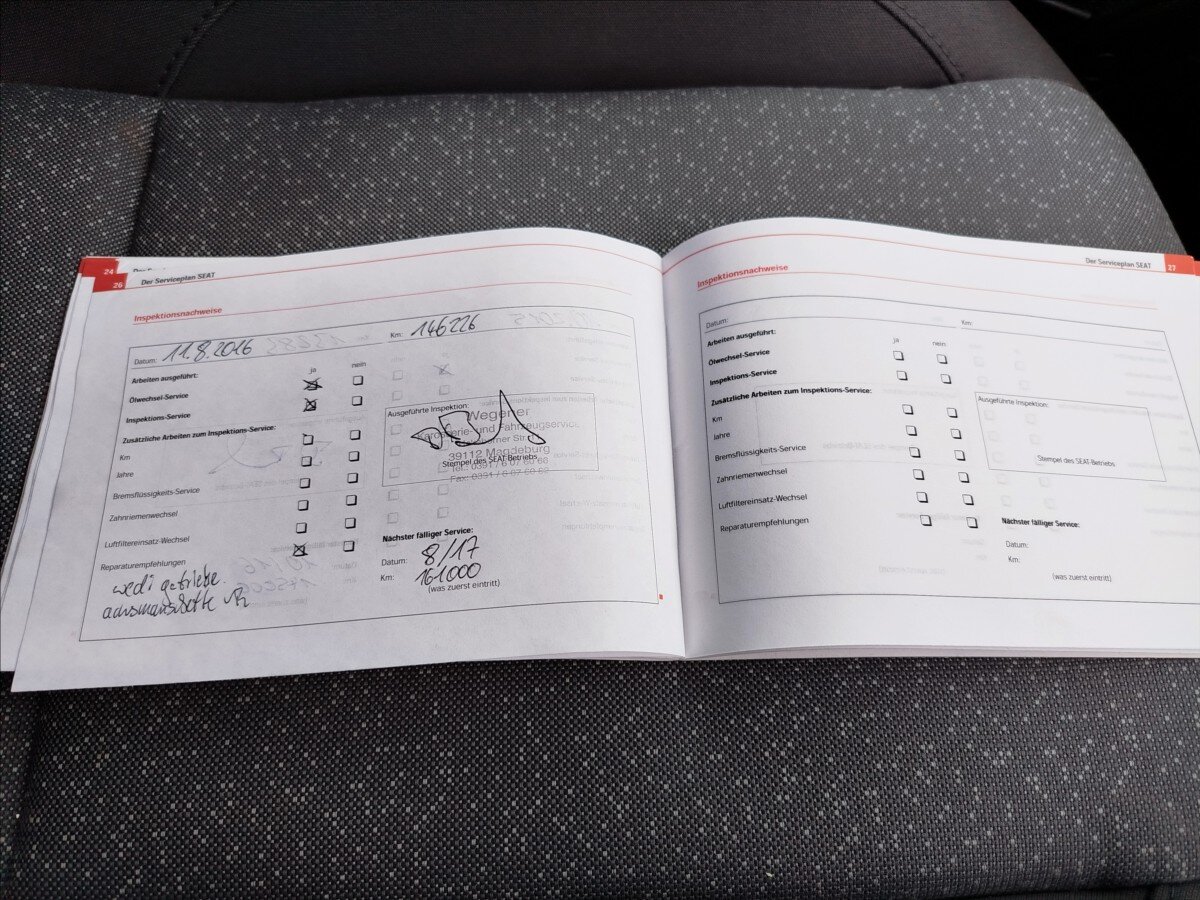 24
26
Der Serviceplan SEAT
Inspektionsnachweise
Datum: 11.8.2016 Km: 146226
Arbeiten ausgeführt: ja nein
Ölwechsel-Service
Inspektions-Service
Zusätzliche Arbeiten zum Inspektions-Service:
Km
Jahre
Bremsflüssigkeits-Service
Zahnriemenwechsel
Luftfiltereinsatz-Wechsel
Reparaturempfehlungen
wedi getriebe.
Ausgeführte Inspektion:
Wegener
Karosserie- und Fahrzeugservice
39112 Magdeburg
Stempel des SEAT-Betriebs
Tel.: 0391 / 6 07 60 68
Fax: 0391 / 6 07 60 69
Nächster fälliger Service:
Datum: 8/17
Km: 161000
(was zuerst eintritt)
Der Serviceplan SEAT
27
Inspektionsnachweise
Datum: Km:
Arbeiten ausgeführt: ja nein
Ölwechsel-Service
Inspektions-Service
Zusätzliche Arbeiten zum Inspektions-Service:
Km
Jahre
Bremsflüssigkeits-Service
Zahnriemenwechsel
Luftfiltereinsatz-Wechsel
Reparaturempfehlungen
Ausgeführte Inspektion:
Stempel des SEAT-Betriebs
Nächster fälliger Service:
Datum:
Km:
(was zuerst eintritt)